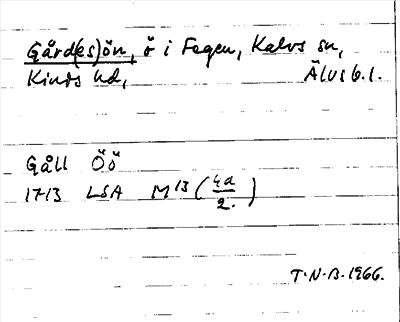 Gård(es)ön, ö i Fegen, Kalvs sn,
Kinds hd, Älvsb.l.
Gåll Öö
1713 LSA M 13 (4a/2.)
T.N.B. 1966.